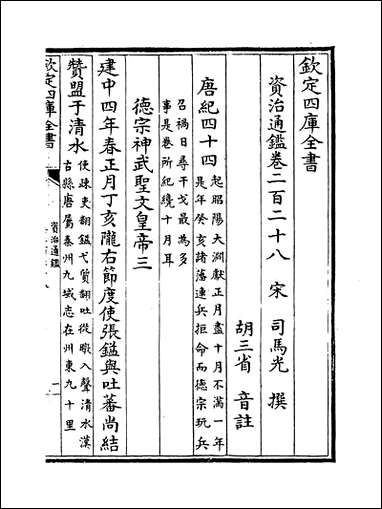 欽定四庫全書
資治通鑑卷二百二十八 宋 司馬光 撰
胡三省 音註
唐紀四十四
起昭陽大淵獻正月盡十月不滿一年
是年癸亥諸藩連兵拒命而德宗玩兵
召禍日尋干戈最為多
事是卷所紀纔十月耳
德宗神武聖文皇帝三
建中四年春正月丁亥隴右節度使張鎰與吐蕃尚結
贊盟于清水
使疎吏翻鎰弋質翻吐從暾入聲清水漢
古縣唐屬秦州九域志在州東九十里
欽定四庫全書
資治通鑑